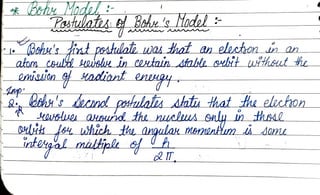 * Bohr Model :-
Postulates of Bohr's Model :-
1. Bohr's first postulate was that an electron in an
atom could revolve in certain stable orbit without the
emission of radiant energy.
Imp
2. Bohr's second postulates states that the electron
* revolves around the nucleus only in those
orbits for which the angular momentum is some
intergal multiple of h
2π.